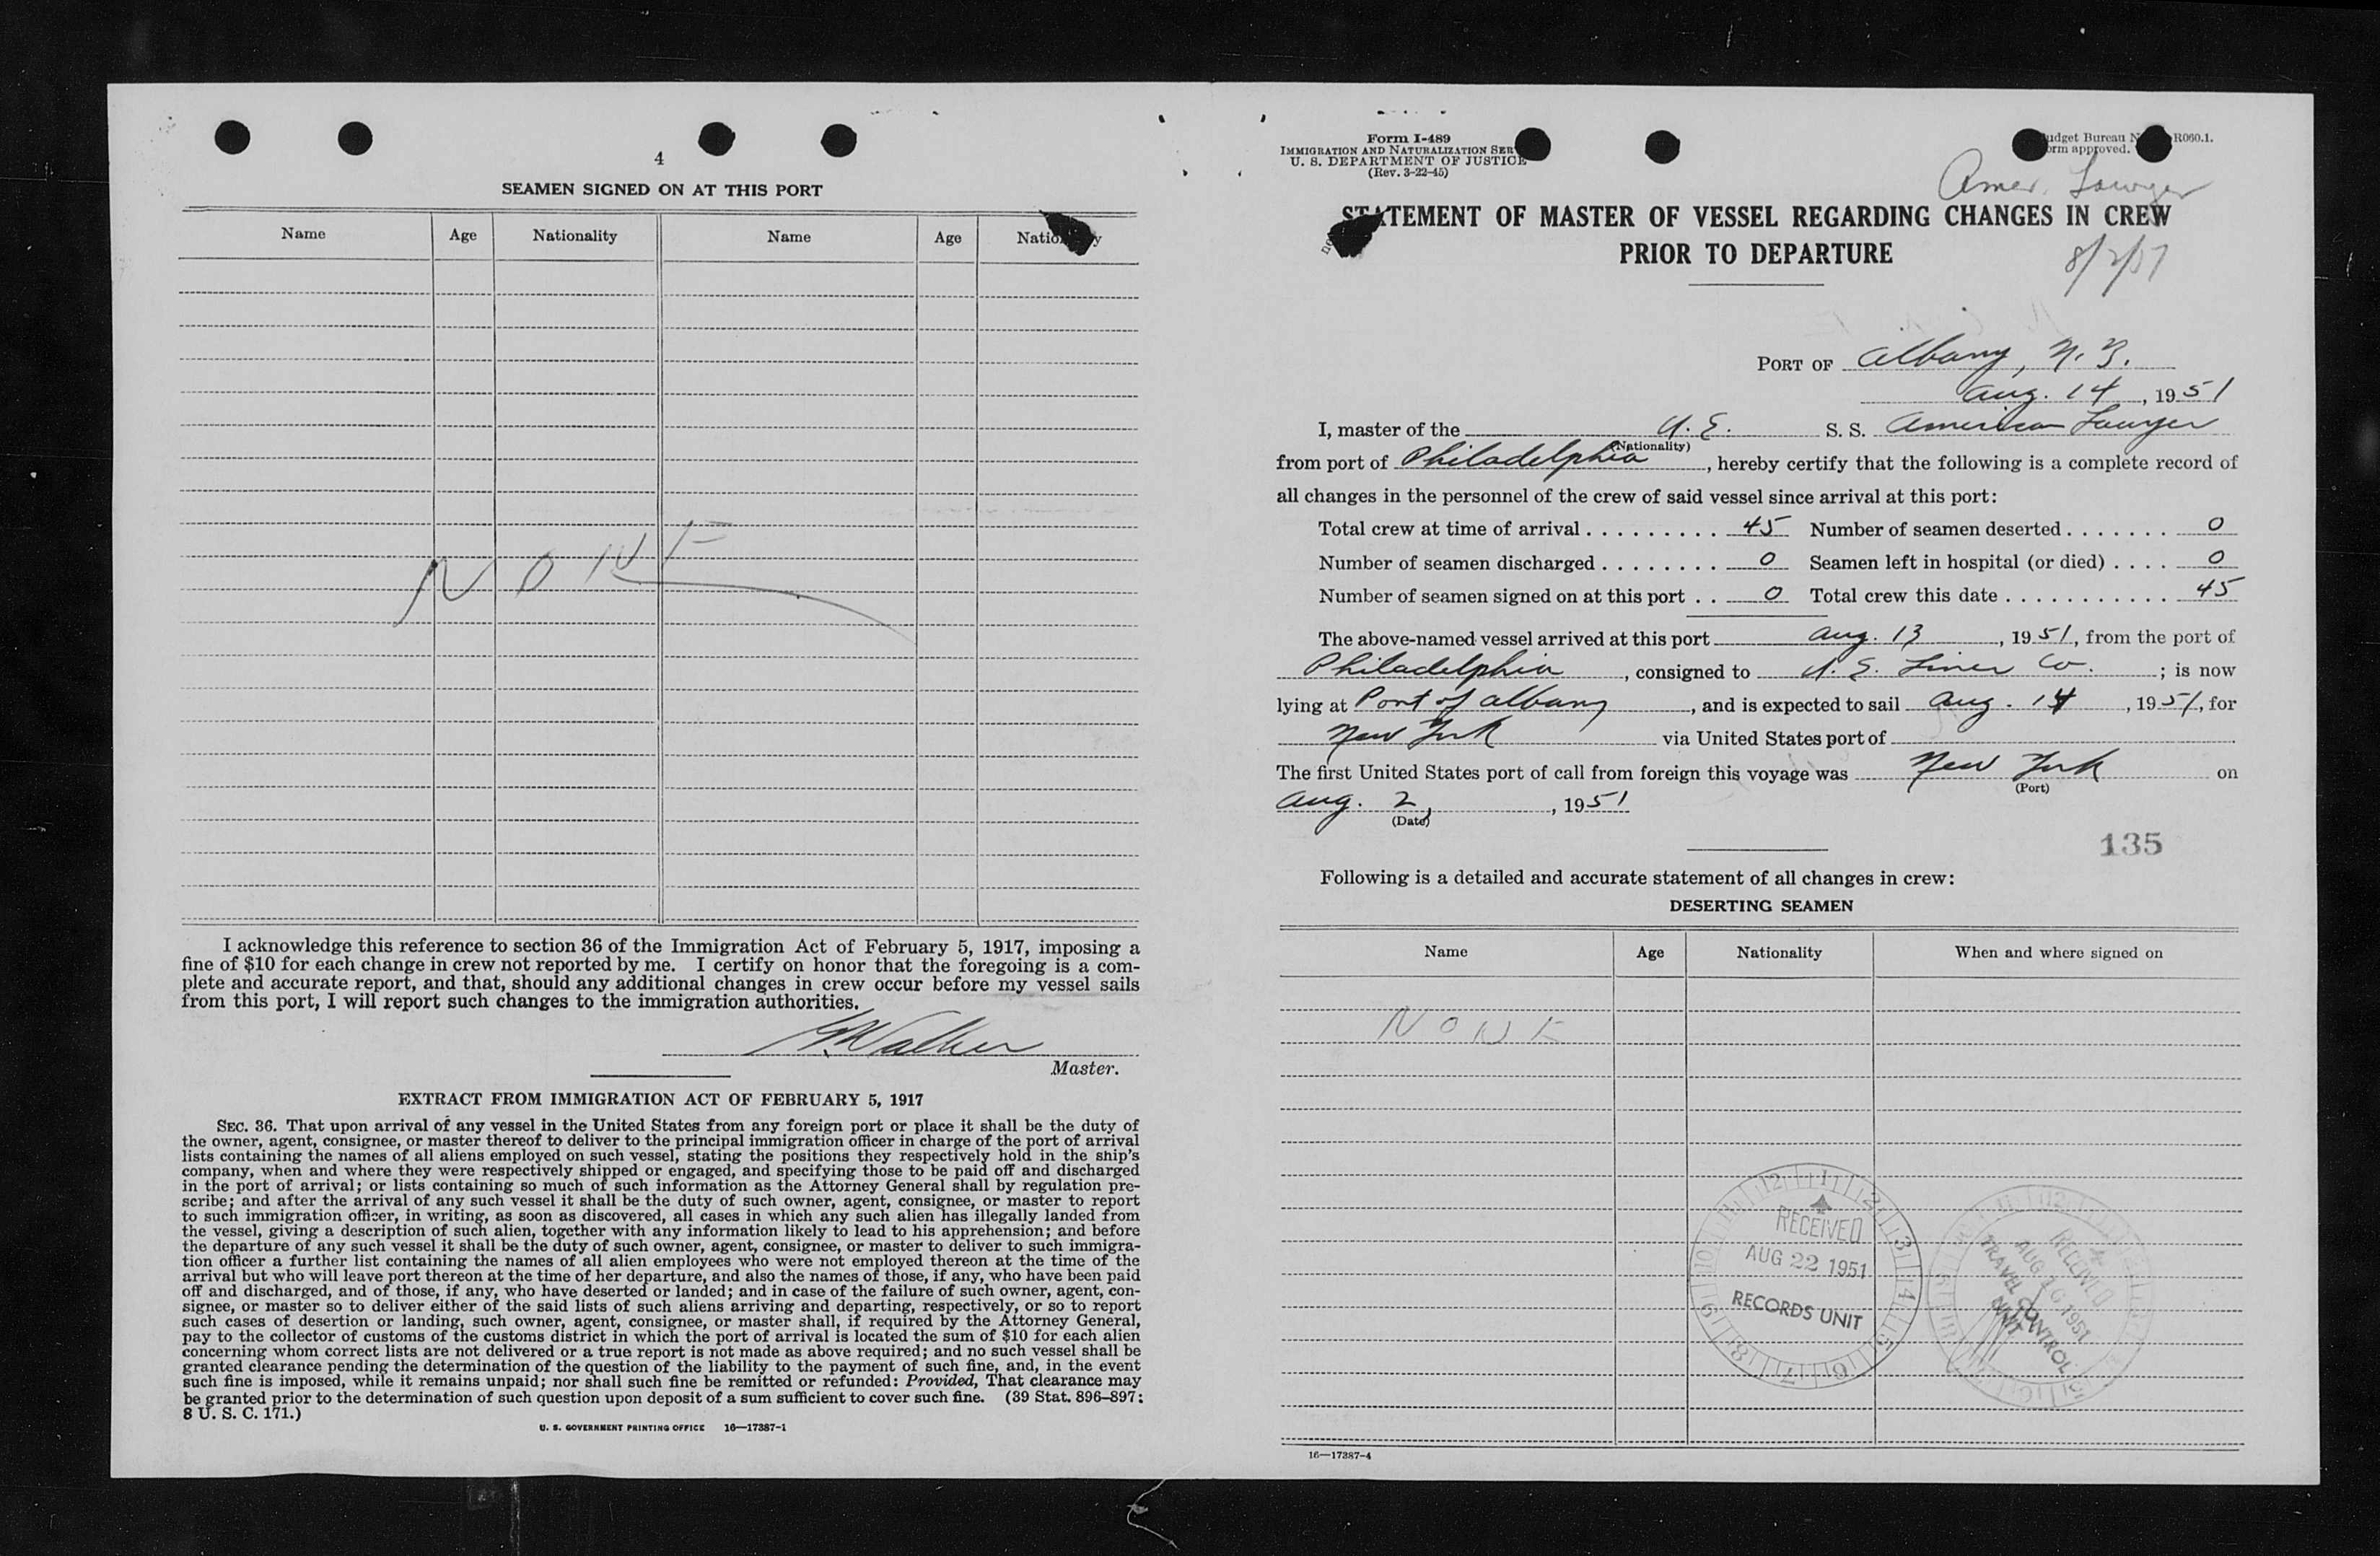 4
SEAMEN SIGNED ON AT THIS PORT
Name Age Nationality Name Age Nationality
NONE
I acknowledge this reference to section 36 of the Immigration Act of February 5, 1917, imposing a
fine of $10 for each change in crew not reported by me. I certify on honor that the foregoing is a com-
plete and accurate report, and that, should any additional changes in crew occur before my vessel sails
from this port, I will report such changes to the immigration authorities.
Walker
Master.
EXTRACT FROM IMMIGRATION ACT OF FEBRUARY 5, 1917
SEC. 36. That upon arrival of any vessel in the United States from any foreign port or place it shall be the duty of
the owner, agent, consignee, or master thereof to deliver to the principal immigration officer in charge of the port of arrival
lists containing the names of all aliens employed on such vessel, stating the positions they respectively hold in the ship's
company, when and where they were respectively shipped or engaged, and specifying those to be paid off and discharged
in the port of arrival; or lists containing so much of such information as the Attorney General shall by regulation pre-
scribe; and after the arrival of any such vessel it shall be the duty of such owner, agent, consignee, or master to report
to such immigration officer, in writing, as soon as discovered, all cases in which any such alien has illegally landed from
the vessel, giving a description of such alien, together with any information likely to lead to his apprehension; and before
the departure of any such vessel it shall be the duty of such owner, agent, consignee, or master to deliver to such immigra-
tion officer a further list containing the names of all alien employees who were not employed thereon at the time of the
arrival but who will leave port thereon at the time of her departure, and also the names of those, if any, who have been paid
off and discharged, and of those, if any, who have deserted or landed; and in case of the failure of such owner, agent, con-
signee, or master so to deliver either of the said lists of such aliens arriving and departing, respectively, or so to report
such cases of desertion or landing, such owner, agent, consignee, or master shall, if required by the Attorney General,
pay to the collector of customs of the customs district in which the port of arrival is located the sum of $10 for each alien
concerning whom correct lists are not delivered or a true report is not made as above required; and no such vessel shall be
granted clearance pending the determination of the question of the liability to the payment of such fine, and, in the event
such fine is imposed, while it remains unpaid; nor shall such fine be remitted or refunded: Provided, That clearance may
be granted prior to the determination of such question upon deposit of a sum sufficient to cover such fine. (39 Stat. 896–897;
8 U. S. C. 171.)
U. S. GOVERNMENT PRINTING OFFICE 16—17387-1
Form I-489
IMMIGRATION AND NATURALIZATION SER
U. S. DEPARTMENT OF JUSTICE
(Rev. 3-22-45)
udget Bureau N R060.1.
orm approved.
Amer. Lawyer
STATEMENT OF MASTER OF VESSEL REGARDING CHANGES IN CREW
PRIOR TO DEPARTURE
8/2/51
PORT OF Albany, N. Y.
Aug. 14, 1951
I, master of the U. S. S. S. American Lawyer
(Nationality)
from port of Philadelphia, hereby certify that the following is a complete record of
all changes in the personnel of the crew of said vessel since arrival at this port:
Total crew at time of arrival . . . . . . . . . 45 Number of seamen deserted . . . . . . . 0
Number of seamen discharged . . . . . . . . 0 Seamen left in hospital (or died) . . . . 0
Number of seamen signed on at this port . . 0 Total crew this date . . . . . . . . . . . 45
The above-named vessel arrived at this port Aug. 13, 1951, from the port of
Philadelphia, consigned to U. S. Lines Co.; is now
lying at Port of Albany, and is expected to sail Aug. 14, 1951, for
New York via United States port of
The first United States port of call from foreign this voyage was New York on
(Port)
Aug. 2, 1951
(Date)
135
Following is a detailed and accurate statement of all changes in crew:
DESERTING SEAMEN
Name Age Nationality When and where signed on
NONE
RECEIVED
AUG 22 1951
RECORDS UNIT
RECEIVED
AUG 16 1951
TRAVEL CONTROL
UNIT
16—17387-4